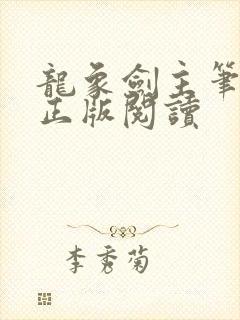 龍象劍主筆
正版閱讀
李秀菊